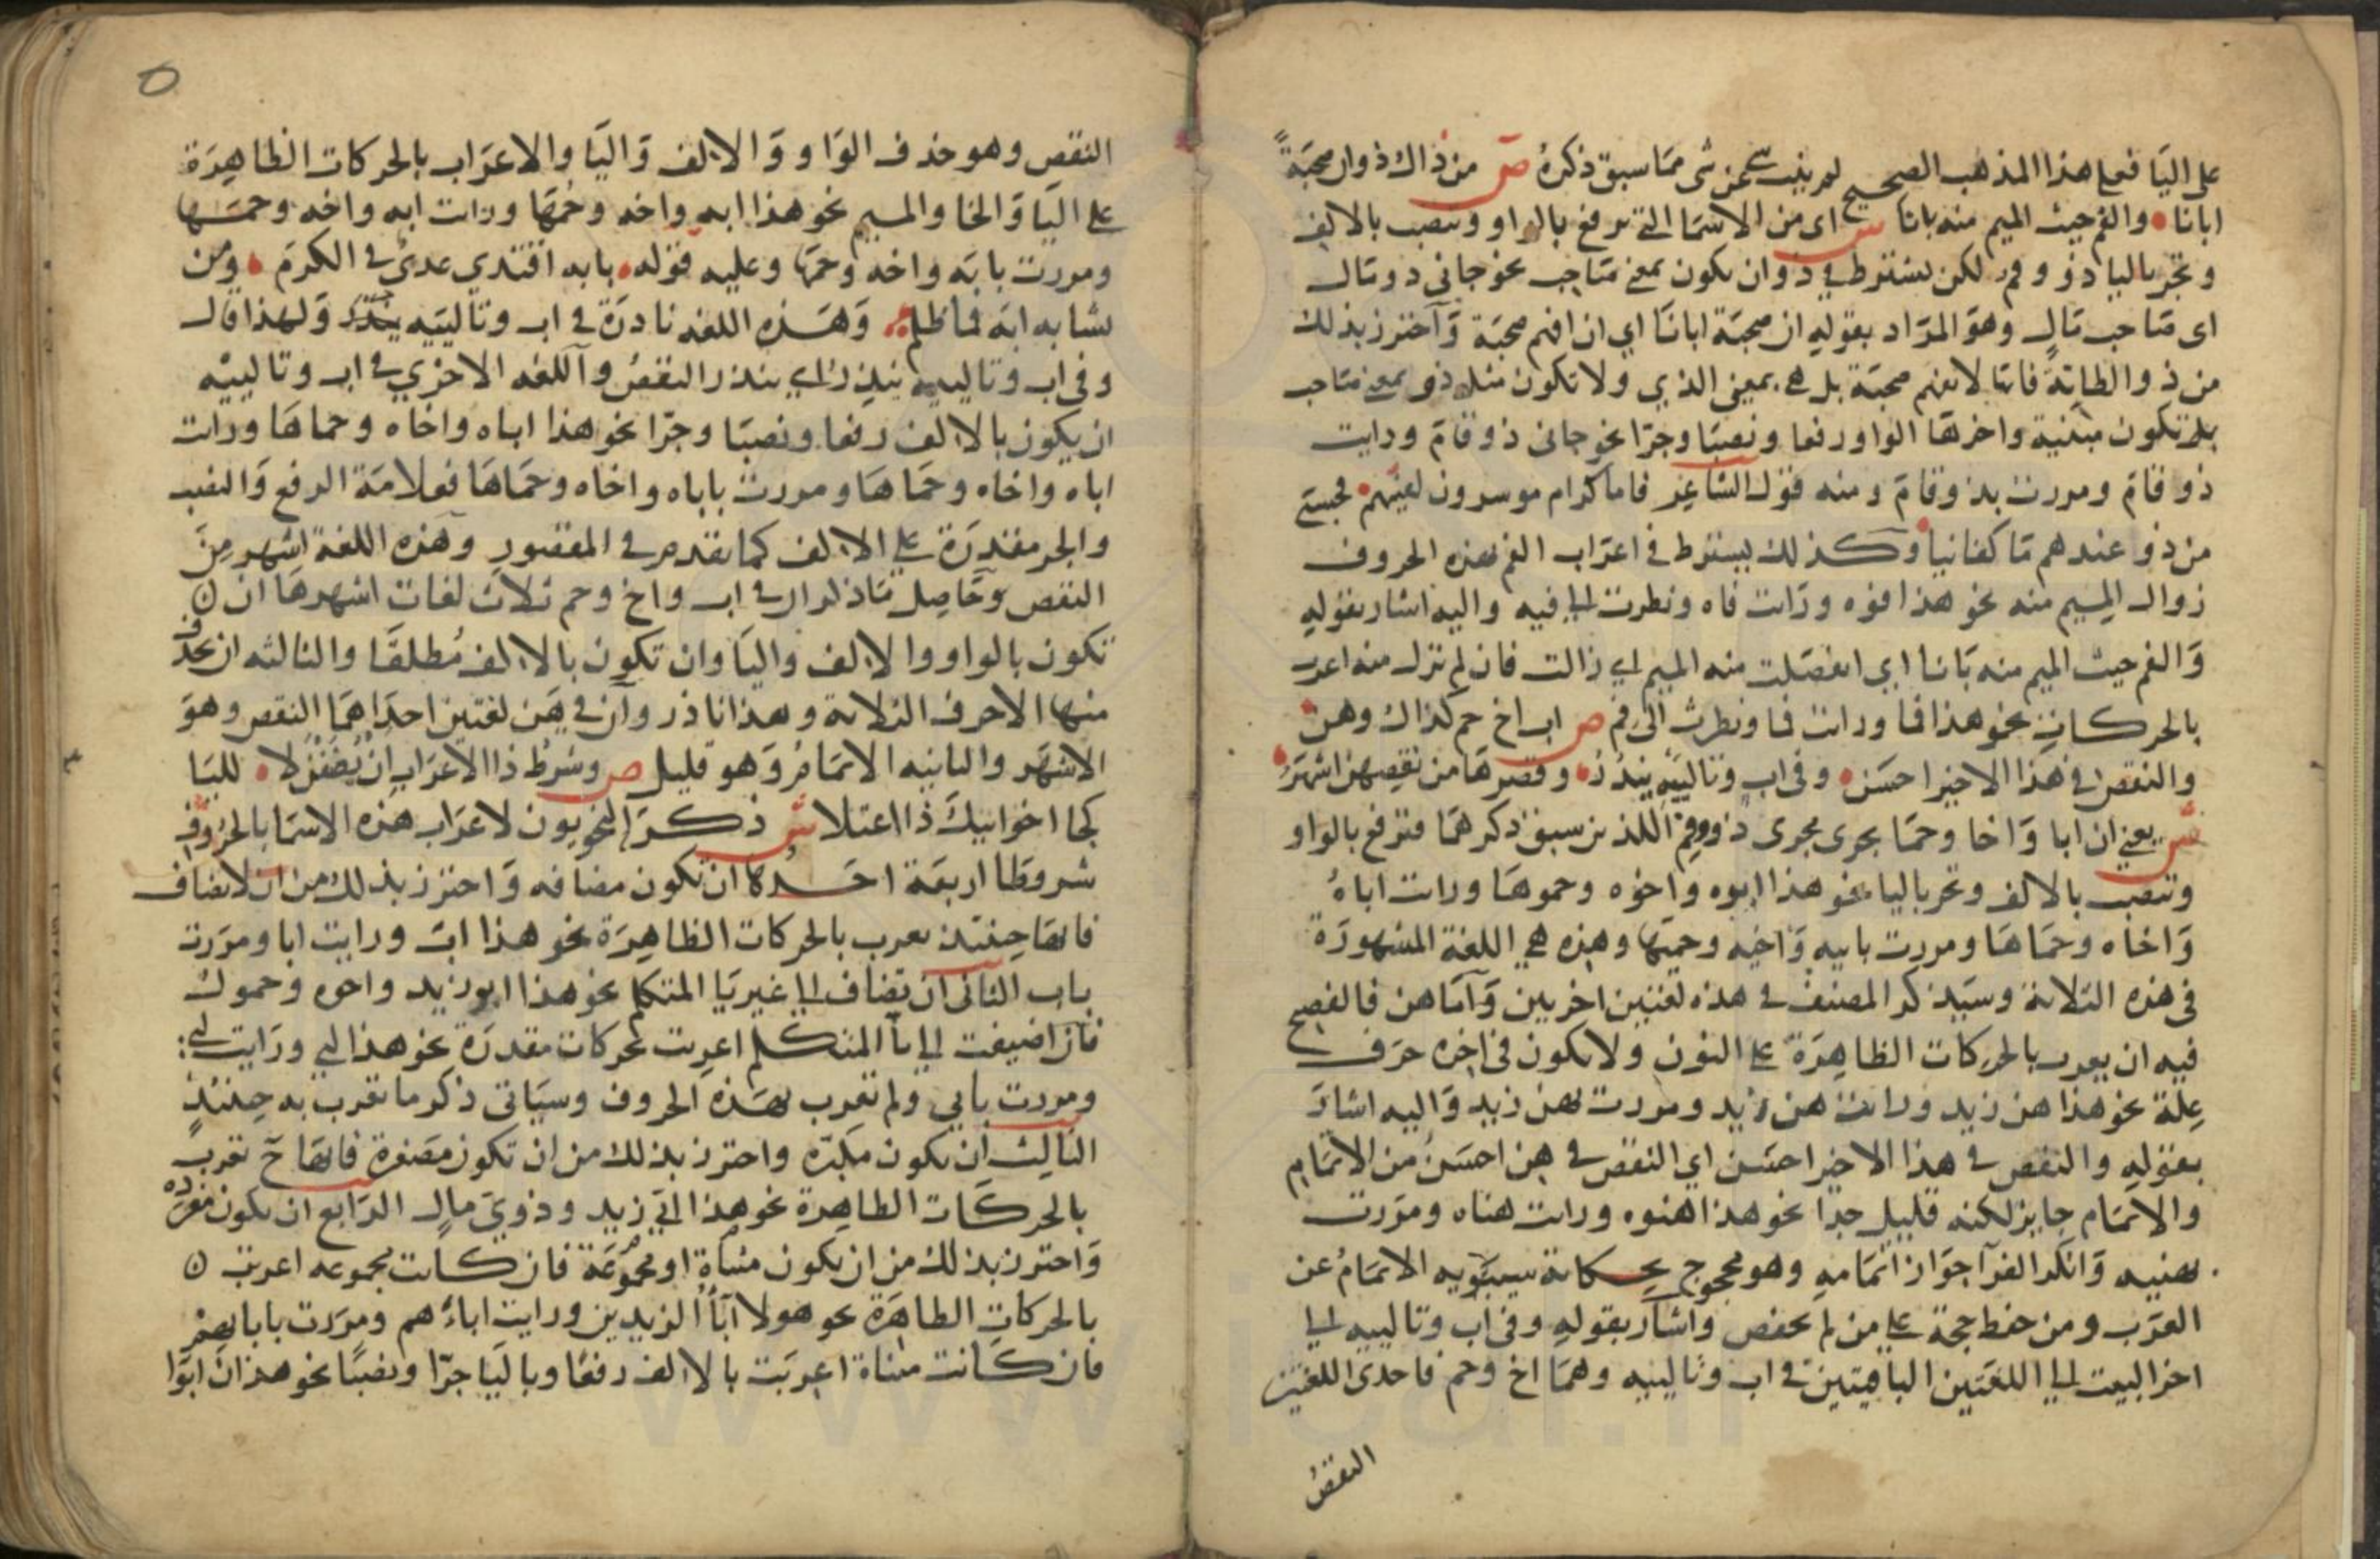 على اليا فعلى هذا المذهب الصحيح لم ينب شى عن شى مما سبق ذكره ص من ذاك ذو ان صحبة
ابانا والفم حيث الميم منه بانا ش اى من الاسما التى ترفع بالواو وتنصب بالالف
وتجر باليا ذو وفم لكن يشترط في ذو ان يكون بمعنى صاحب نحو جانى ذو مال
اى صاحب مال وهو المراد بقوله ان صحبة ابانا اي ان افهم صحبة واحترز بذلك
من ذو الطائية فانها لا تفهم صحبة بل هي بمعنى الذي ولا تكون مثل ذو بمعنى صاحب
بل تكون مبنية واخرها الواو رفعا ونصبا وجرا نحو جانى ذو قام ورايت
ذو قام ومررت بذو قام ومنه قول الشاعر فاما كرام موسرون لقيتهم فحسبي
من ذو عندهم ما كفانيا وكذلك يشترط في اعراب الفم بهذه الحروف
زوال الميم منه نحو هذا فوه ورات فاه ونظرت الى فيه واليه اشار بقوله
والفم حيث الميم منه بانا اي انفصلت منه الميم اي زالت فان لم تزل منه اعرب
بالحركات نحو هذا فما ورات فما ونظرت الى فم ص اب اخ حم كذاك وهن
والنقص في هذا الاخير احسن وفى اب وتالييه يندر وقصرها من نقصهن اشهر
ش يعنى ان ابا واخا وحما يجرى مجرى ذو وفم اللذين سبق ذكرهما فترفع بالواو
وتنصب بالالف وتجر باليا نحو هذا ابوه واخوه وحموها ورات اباه
واخاه وحماها ومررت بابيه واخيه وحميها وهذه هي اللغة المشهورة
فى هذه الثلاثة وسيذكر المصنف في هذه لغتين اخريين واما هن فالفصيح
فيه ان يعرب بالحركات الظاهرة على النون ولا يكون فى اخره حرف
علة نحو هذا هن زيد ورات هن زيد ومررت بهن زيد واليه اشار
بقوله والنقص في هذا الاخير احسن اي النقص في هن احسن من الاتمام
والاتمام جايز لكنه قليل جدا نحو هذا هنوه ورات هناه ومررت
بهنيه وانكر الفرا جواز اتمامه وهو محجوج بحكاية سيبويه الاتمام عن
العرب ومن حفظ حجة على من لم يحفظ واشار بقوله وفى اب وتالييه الى
اخر البيت الى اللغتين الباقيتين في اب وتالييه وهما اخ وحم فاحدى اللغتين
النقص
٥
النقص وهو حذف الواو والالف واليا والاعراب بالحركات الظاهرة
على البا والخا والميم نحو هذا ابه واخه وحمها ورات ابه واخه وحمها
ومررت بابه واخه وحمها وعليه قوله بابه اقتدي عدى في الكرم ومن
يشابه ابه فما ظلم وهذه اللغه نادرة في اب وتالييه ولهذا قال
وفى اب وتالييه يندر اي يندر النقص واللغه الاخرى في اب وتالييه
ان يكون بالالف رفعا ونصبا وجرا نحو هذا اباه واخاه وحماها ورات
اباه واخاه وحماها ومررت باباه واخاه وحماها فعلامة الرفع والنصب
والجر مقدرة على الالف كما تقدم في المقصور وهذه اللغة اشهر من
النقص وحاصل ما ذكر ان في اب واخ وحم ثلاث لغات اشهرها ان
تكون بالواو والالف واليا وان تكون بالالف مطلقا والثالثه ان يحذف
منها الاحرف الثلاثة وهذا نادر وان في هن لغتين احداهما النقص وهو
الاشهر والثانيه الاتمام وهو قليل ص وشرط ذا الاعراب ان يضفن لا لليا
كجا اخو ابيك ذا اعتلا ش ذكر النحويون لاعراب هذه الاسما بالحروف
شروطا اربعة احدها ان تكون مضافه واحترز بذلك من ان لا تضاف
فانها حينئذ تعرب بالحركات الظاهرة نحو هذا اب ورايت ابا ومررت
باب الثانى ان تضاف الى غير يا المتكلم نحو هذا ابو زيد واخوه وحموك
فان اضيفت الى يا المتكلم اعربت بحركات مقدرة نحو هذا ابي ورايت ابي
ومررت بابي ولم تعرب بهذه الحروف وسياتى ذكر ما تعرب به حينئذ
الثالث ان تكون مكبره واحترز بذلك من ان تكون مصغرة فانها ح تعرب
بالحركات الظاهرة نحو هذا ابي زيد وذوي مال الرابع ان تكون مفرده
واحترز بذلك من ان تكون مثناة او مجموعة فان كانت مجموعه اعربت
بالحركات الظاهرة نحو هولا اباا الزيدين ورايت اباءهم ومررت باباىهم
فان كانت مثناة اعربت بالالف رفعا وباليا جرا ونصبا نحو هذان ابوا